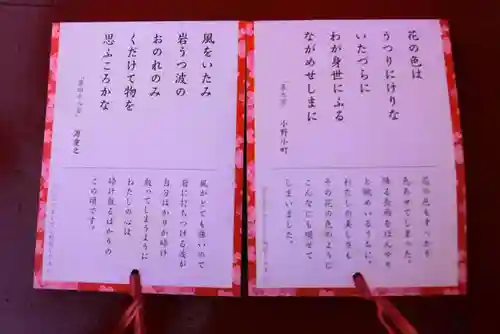 花の色は
うつりにけりな
いたづらに
わが身世にふる
ながめせしまに
小野小町
花の色もすっかり
色あせてしまった。
降る長雨をぼんやり
と眺めいるうちに。
わたしの美しさも
その花の色のように
こんなにも褪せて
しまいました。
風をいたみ
岩うつ波の
おのれのみ
くだけて物を
思ふころかな
「第四十八首」 源重之
風がとても強いので
岩に打ちつける波が
自分ばかりが砕け
散ってしまうように
わたしの心は
砕け散るばかりの
この頃です。